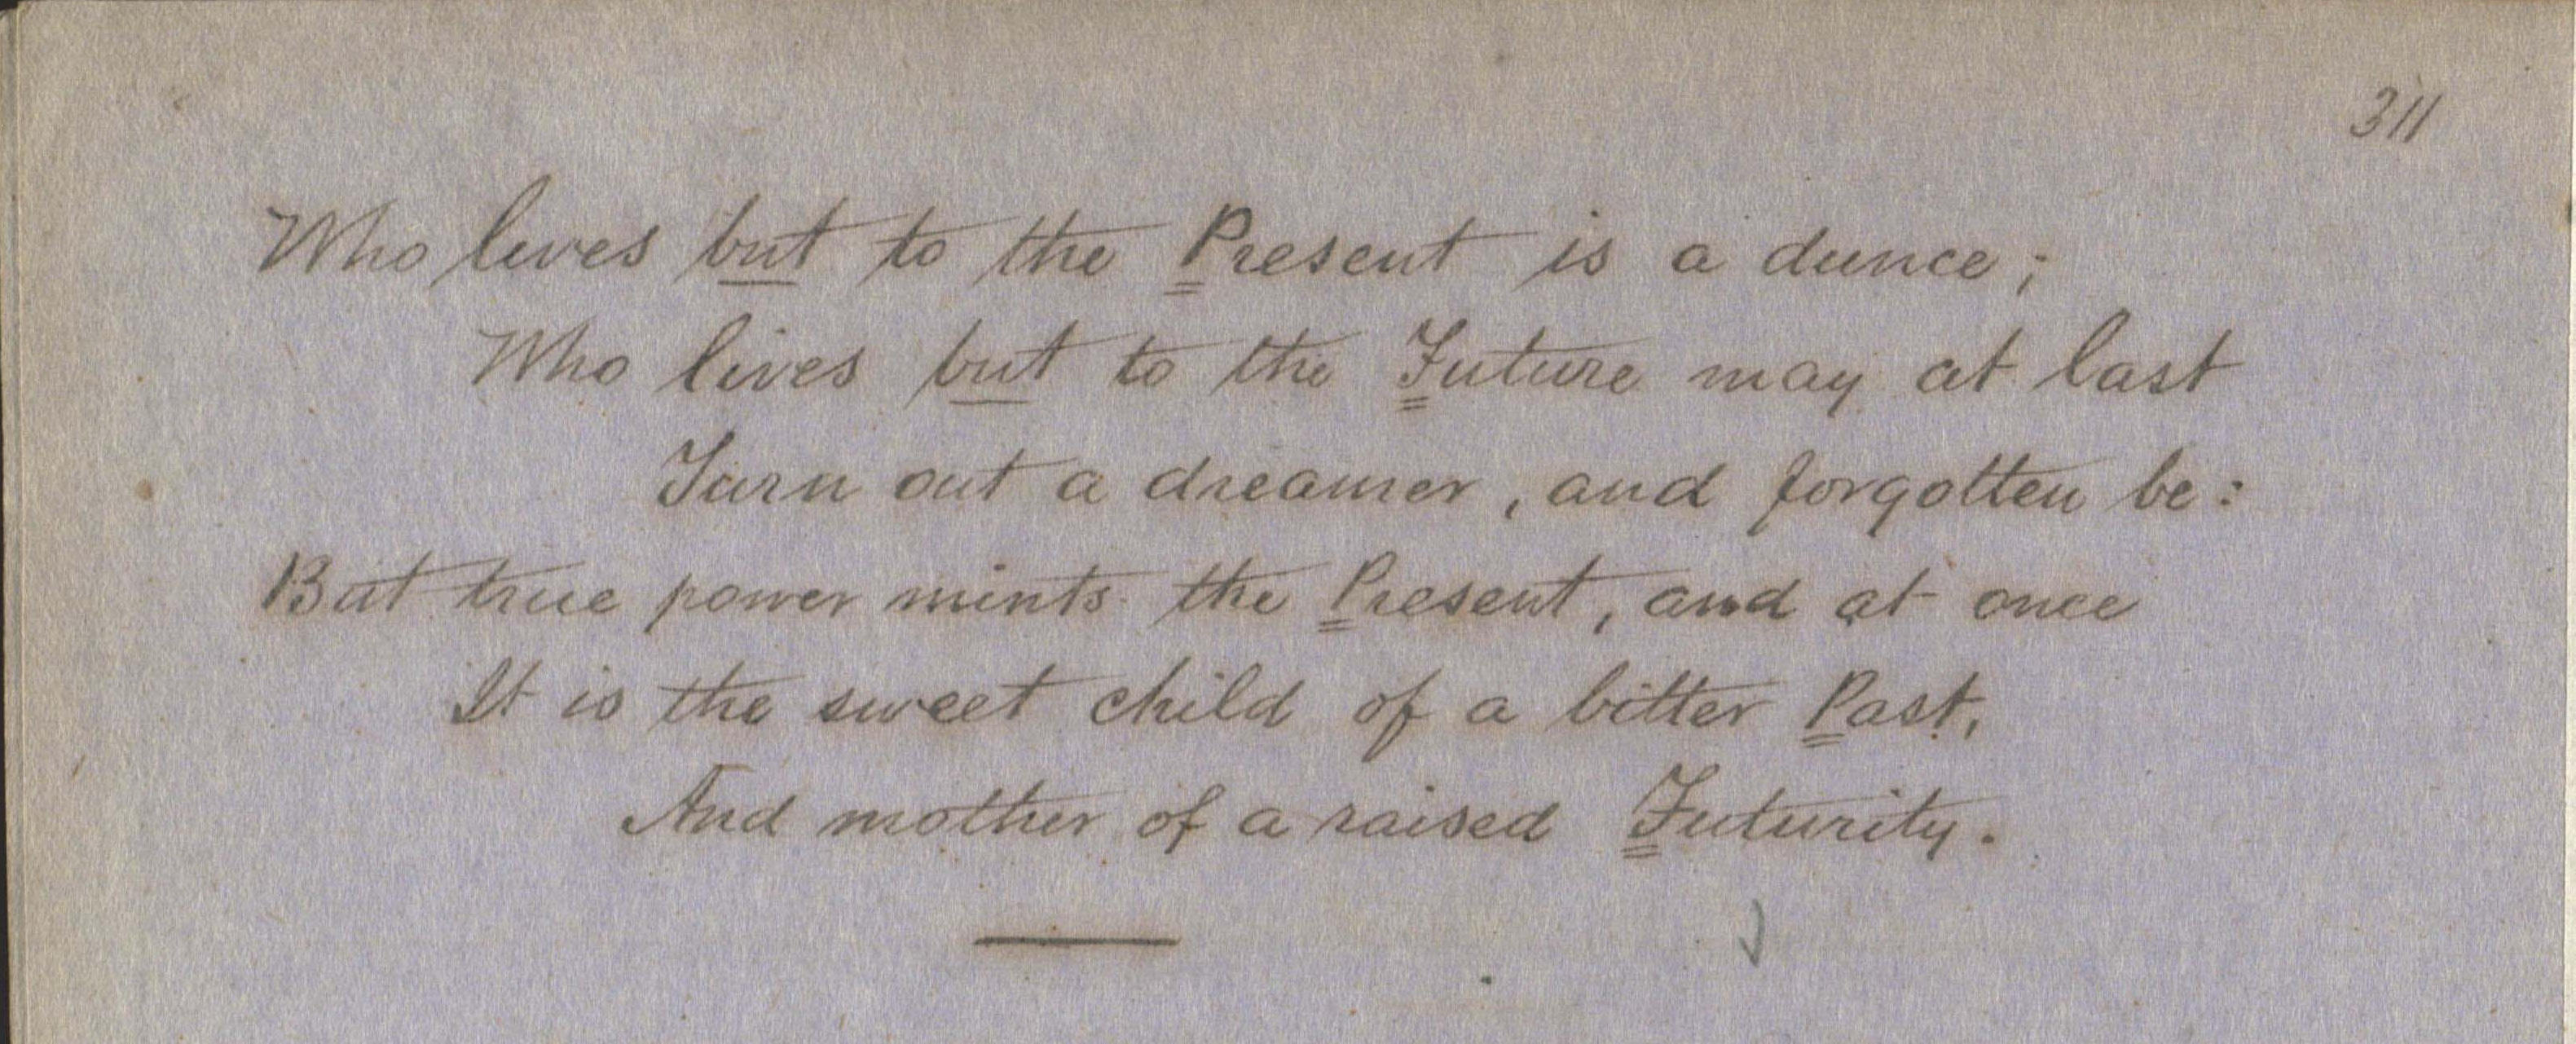 311
Who lives but to the Present is a dunce;
Who lives but to the Future may at last
Turn out a dreamer, and forgotten be:
But true power mints the Present, and at once
It is the sweet child of a bitter Past,
And mother of a raised Futurity.